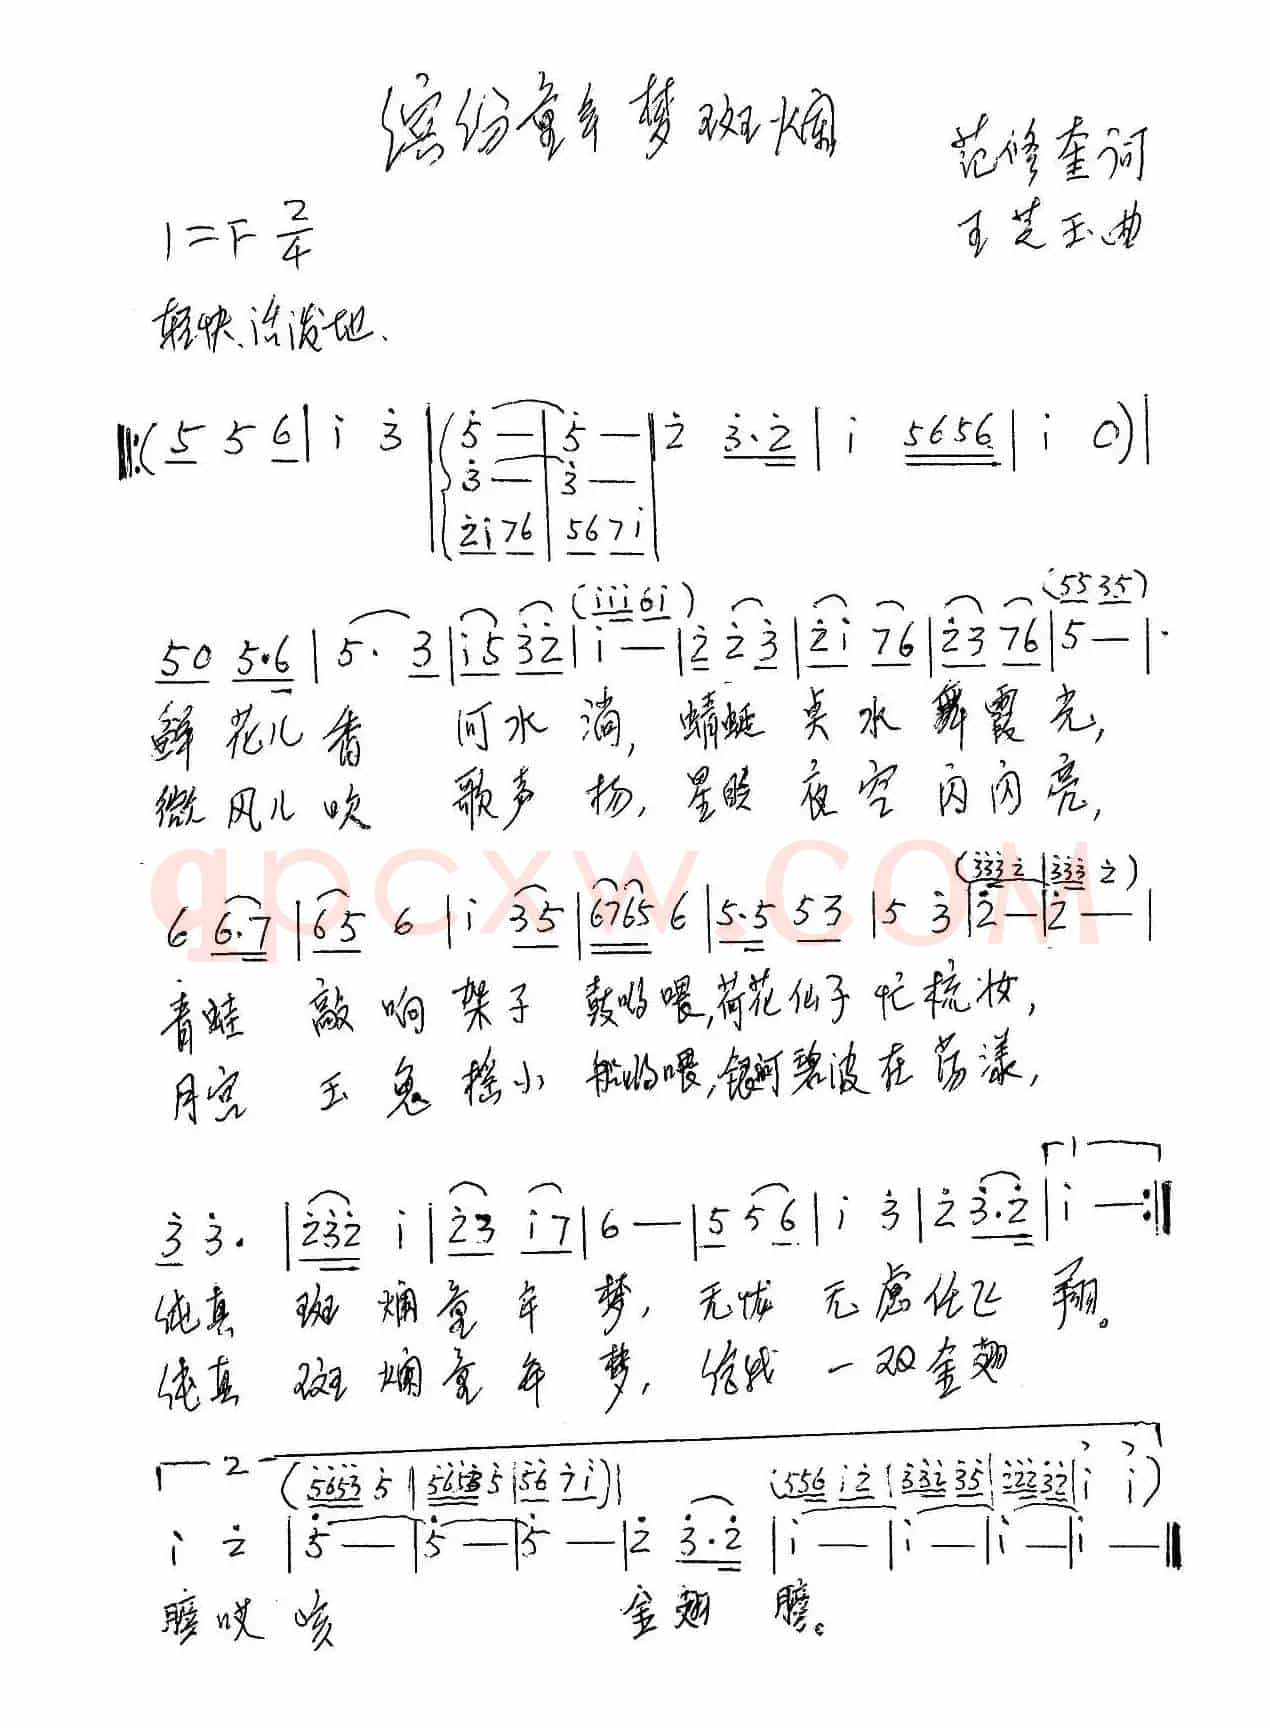 缤纷童年梦斑斓
范修奎词
王芝玉曲
1=F 2/4
轻快、活泼地、
‖:(5 5 6 | i 3 | 5 — | 5 — | 2 3·2 | i 5656 | i 0) |
3 — | 3 —
2i76 | 567i
(iii6i) (5535)
50 5·6 | 5· 3 | i5 32 | i — | 2 2 3 | 2i 76 | 23 76 | 5 — |
鲜花儿香 河水淌,蜻蜓点水舞霞光,
微风儿吹 歌声扬,星晚夜空闪闪亮,
qpcxw.COM
(3332 | 3332)
6 6·7 | 65 6 | i 35 | 6765 6 | 5·5 53 | 5 3 | 2 — | 2 — |
青蛙 敲响架子 鼓哟喂,荷花仙子忙梳妆,
月宫 玉兔摇小 船哟喂,银河碧波在荡漾,
1
3 3· | 232 i | 23 i7 | 6 — | 5 5 6 | i 3 | 2 3·2 | i — :‖
纯真 斑斓童年梦,无忧无虑任飞翔。
纯真 斑斓童年梦,给我一双金翅
2
(5653 5 | 5653 5 | 56 7i) | (556 i2 | 332 35 | 222 32 | i i)
i 2 | 5 — | 5 — | 5 — | 2 3·2 | i — | i — | i — | i — ‖
膀哎咳 金翅膀。